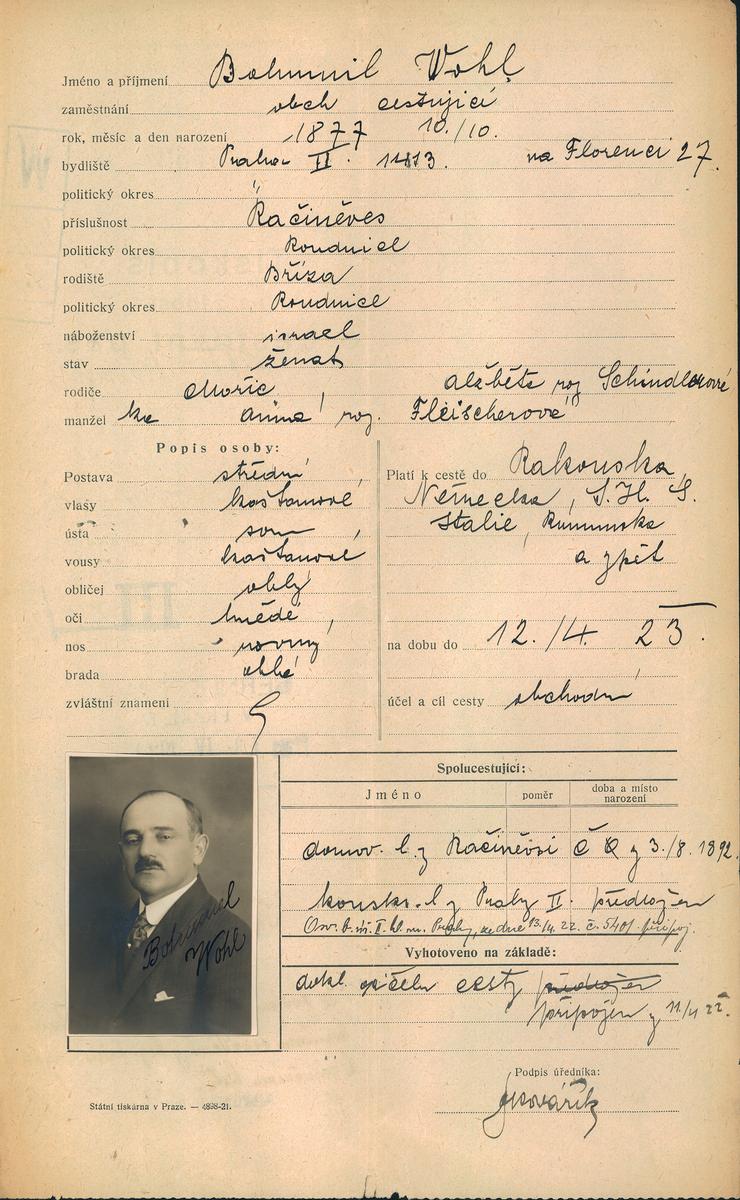 Jméno a příjmení Bohumil Wohl
zaměstnání obch cestující
rok, měsíc a den narození 1877 10./10.
bydliště Praha II. na Florenci 27.
politický okres "
příslušnost Račiněves
politický okres Roudnice
rodiště Bříza
politický okres Roudnice
náboženství israel
stav ženat
rodiče Mořic, Alžběta roz Schindlerové
manžel ka Anna roz. Fleischerové
Popis osoby:
Postava střední
vlasy kaštanové
ústa soum
vousy kaštanové
obličej oblý
oči hnědé
nos rovný
brada oblá
zvláštní znamení
Platí k cestě do Rakouska,
Německa, S. H. S.
Italie, Rumunska
a zpět
na dobu do 12./4. 23.
účel a cíl cesty obchodní
Bohumil
Wohl
Spolucestující:
Jméno poměr doba a místo narození
domov. l. z Račiněvsi z 3./8. 1892.
konskr. l z Prahy II. předložen
ze dne 13./4. 22. č. 5401 připoj.
Vyhotoveno na základě:
dokl. o účelu cesty předložen
připojen z 11/4 22.
Podpis úředníka:
Státní tiskárna v Praze. — 4898-21.